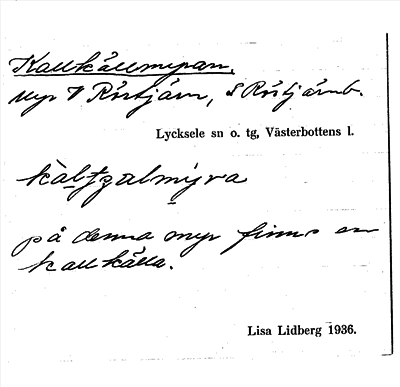 Kallkällmyran.
Myr V Röstjärn, S Röstjärnb.
Lycksele sn o. tg, Västerbottens l.
på denna myr finns en
kallkälla.
Lisa Lidberg 1936.